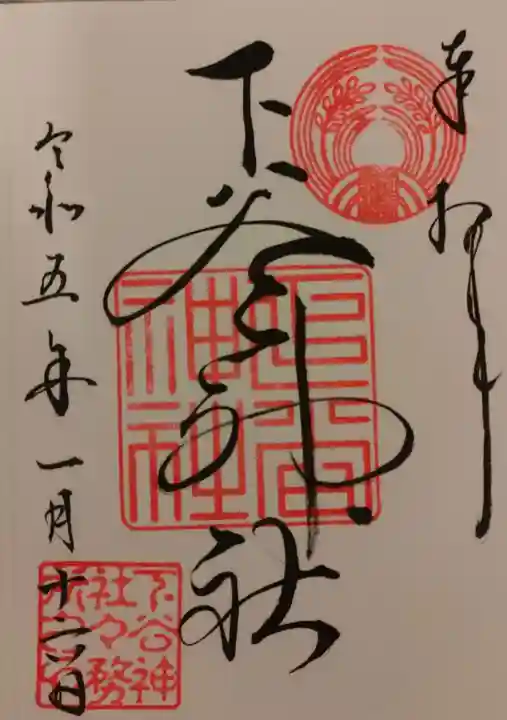 奉拝
下谷神社
下谷神社
令和五年一月十六日
下谷神
社々務
所之印